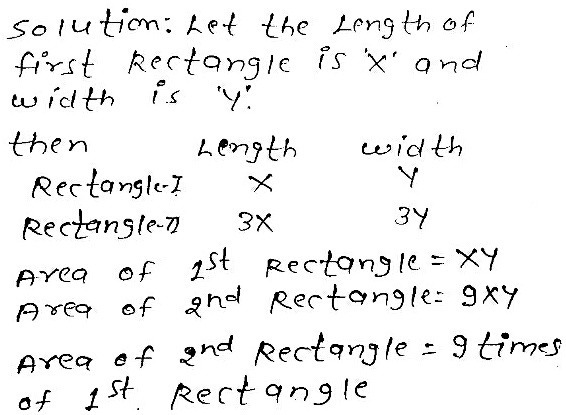 Solution: Let the Length of
first Rectangle is 'X' and
width is 'Y'.
then Length width
Rectangle-I X Y
Rectangle-II 3X 3Y
Area of 1st Rectangle = XY
Area of 2nd Rectangle = 9XY
Area of 2nd Rectangle = 9 times
of 1st. Rectangle